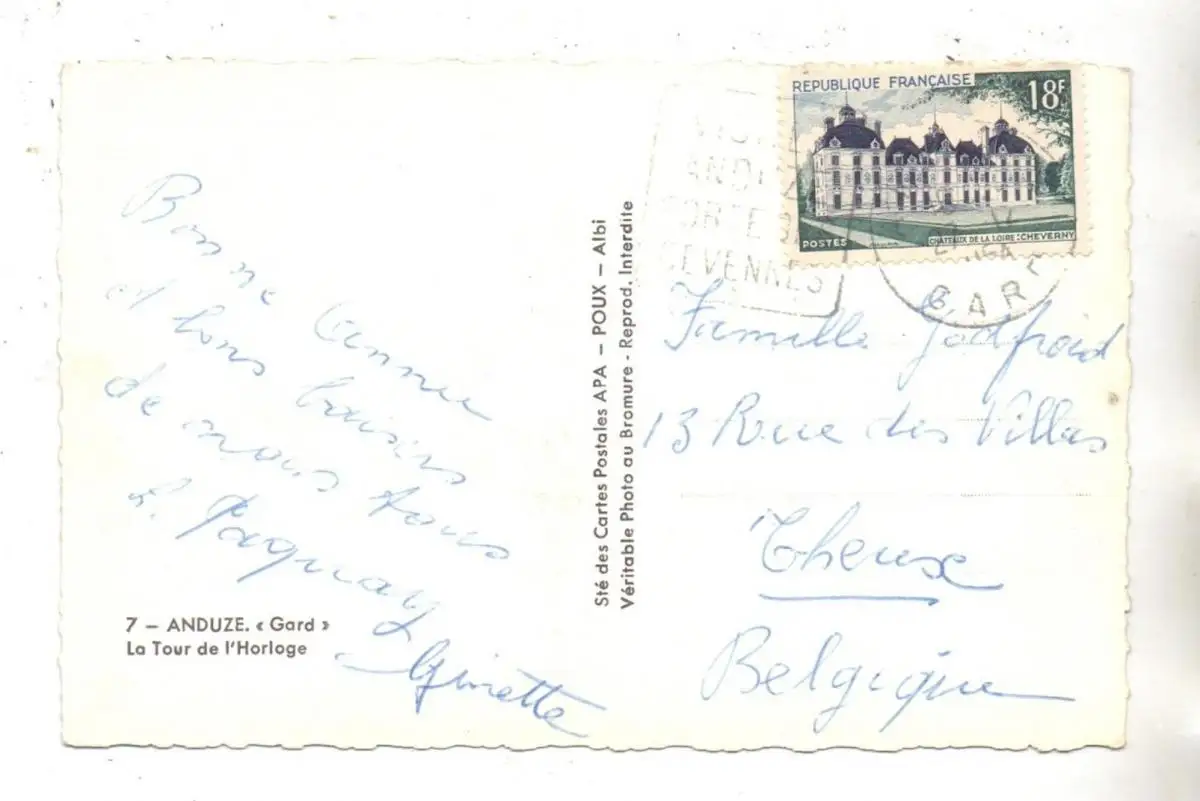 REPUBLIQUE FRANÇAISE
18F
POSTES
CHATEAUX DE LA LOIRE: CHEVERNY
ANDUZE
PORTE DES
CEVENNES
GARD
Bonne année
et bons baisers
de nous tous
Paquay
Ginette
7 – ANDUZE. « Gard »
La Tour de l'Horloge
Sté des Cartes Postales APA – POUX – Albi
Véritable Photo au Bromure - Reprod. Interdite
Famille Godfroid
13 Rue des Villas
Theux
Belgique